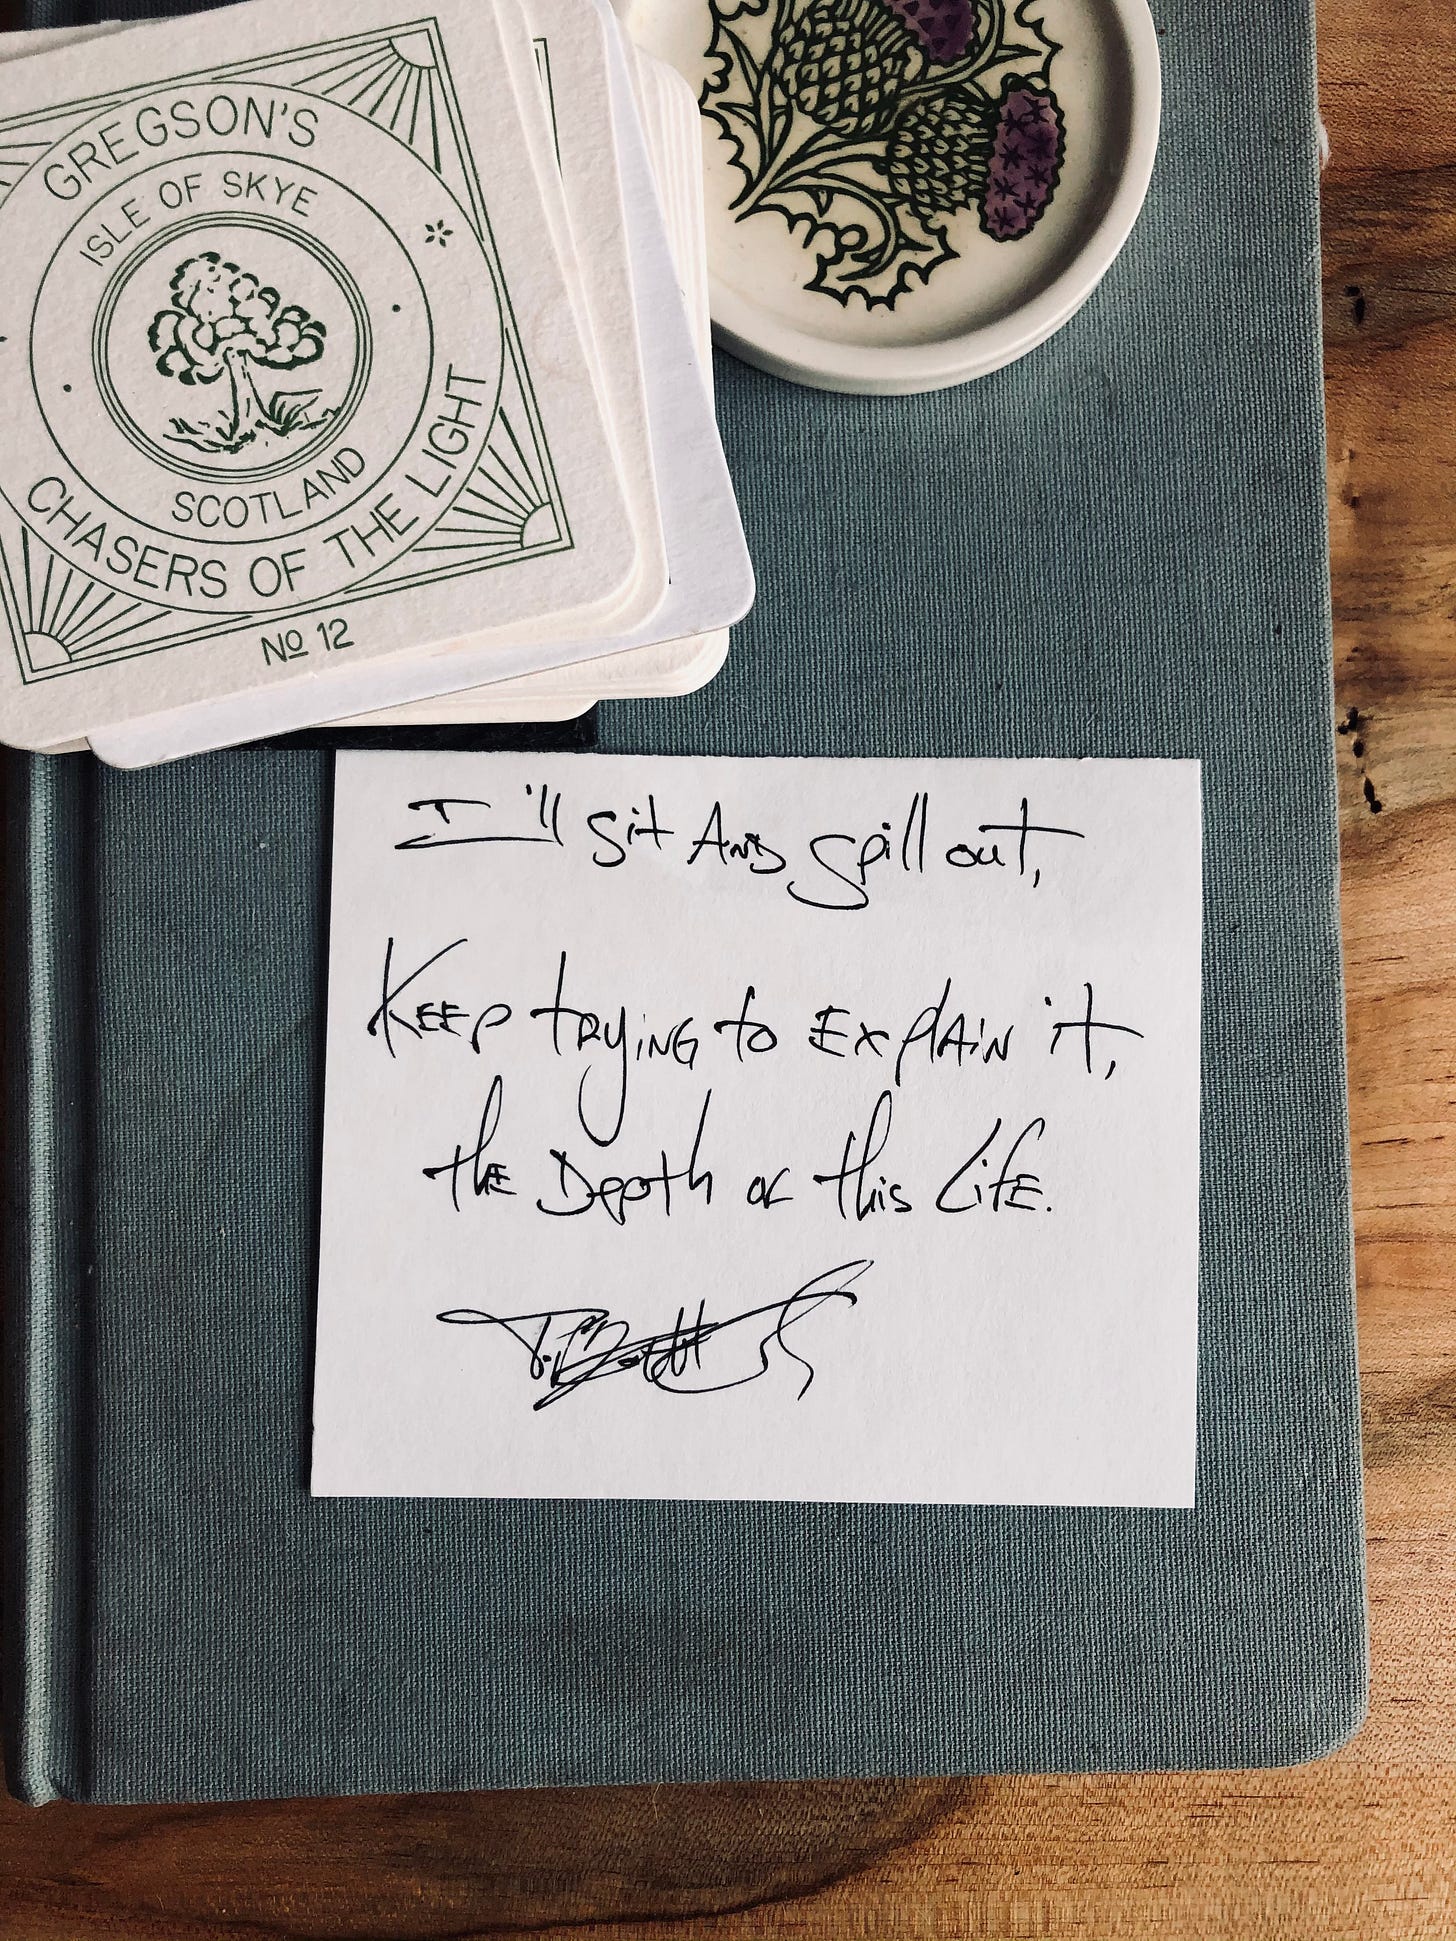 GREGSON'S
ISLE OF SKYE
SCOTLAND
CHASERS OF THE LIGHT
Nº 12
I'll sit And spill out,
KEEP trying to Explain it,
the Depth of this Life.